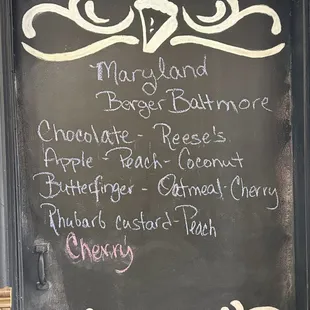 Maryland
Berger Baltmore
Chocolate - Reese's
Apple - Peach - Coconut
Butterfinger - Oatmeal - Cherry
Rhubarb custard - Peach
Cherry